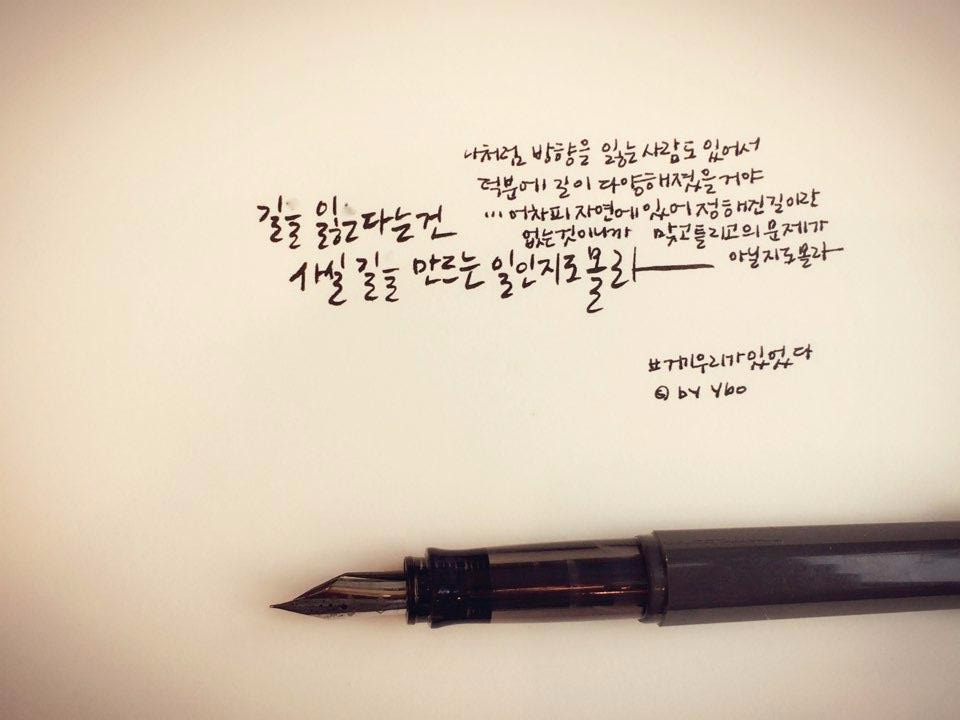 길을 잃는다는건
사실 길을 만드는 일인지도 몰라
나처럼 방향을 잃는 사람도 있어서
덕분에 길이 다양해졌을거야
... 어차피 자연에 있어 정해진 길이란
없는것이니까 맞고 틀리고의 문제가
아닐지도 몰라
#거기우리가있었다
@ by ybo